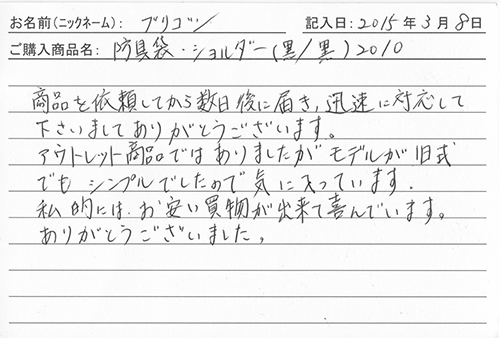 お名前(ニックネーム): ブリゴン 記入日: 2015年3月8日
ご購入商品名: 防具袋・ショルダー(黒/黒)2010
商品を依頼してから数日後に届き、迅速に対応して
下さいましてありがとうございます。
アウトレット商品ではありましたがモデルが旧式
でもシンプルでしたので気に入っています.
私的には、お安い買物が出来て喜んでいます。
ありがとうございました。